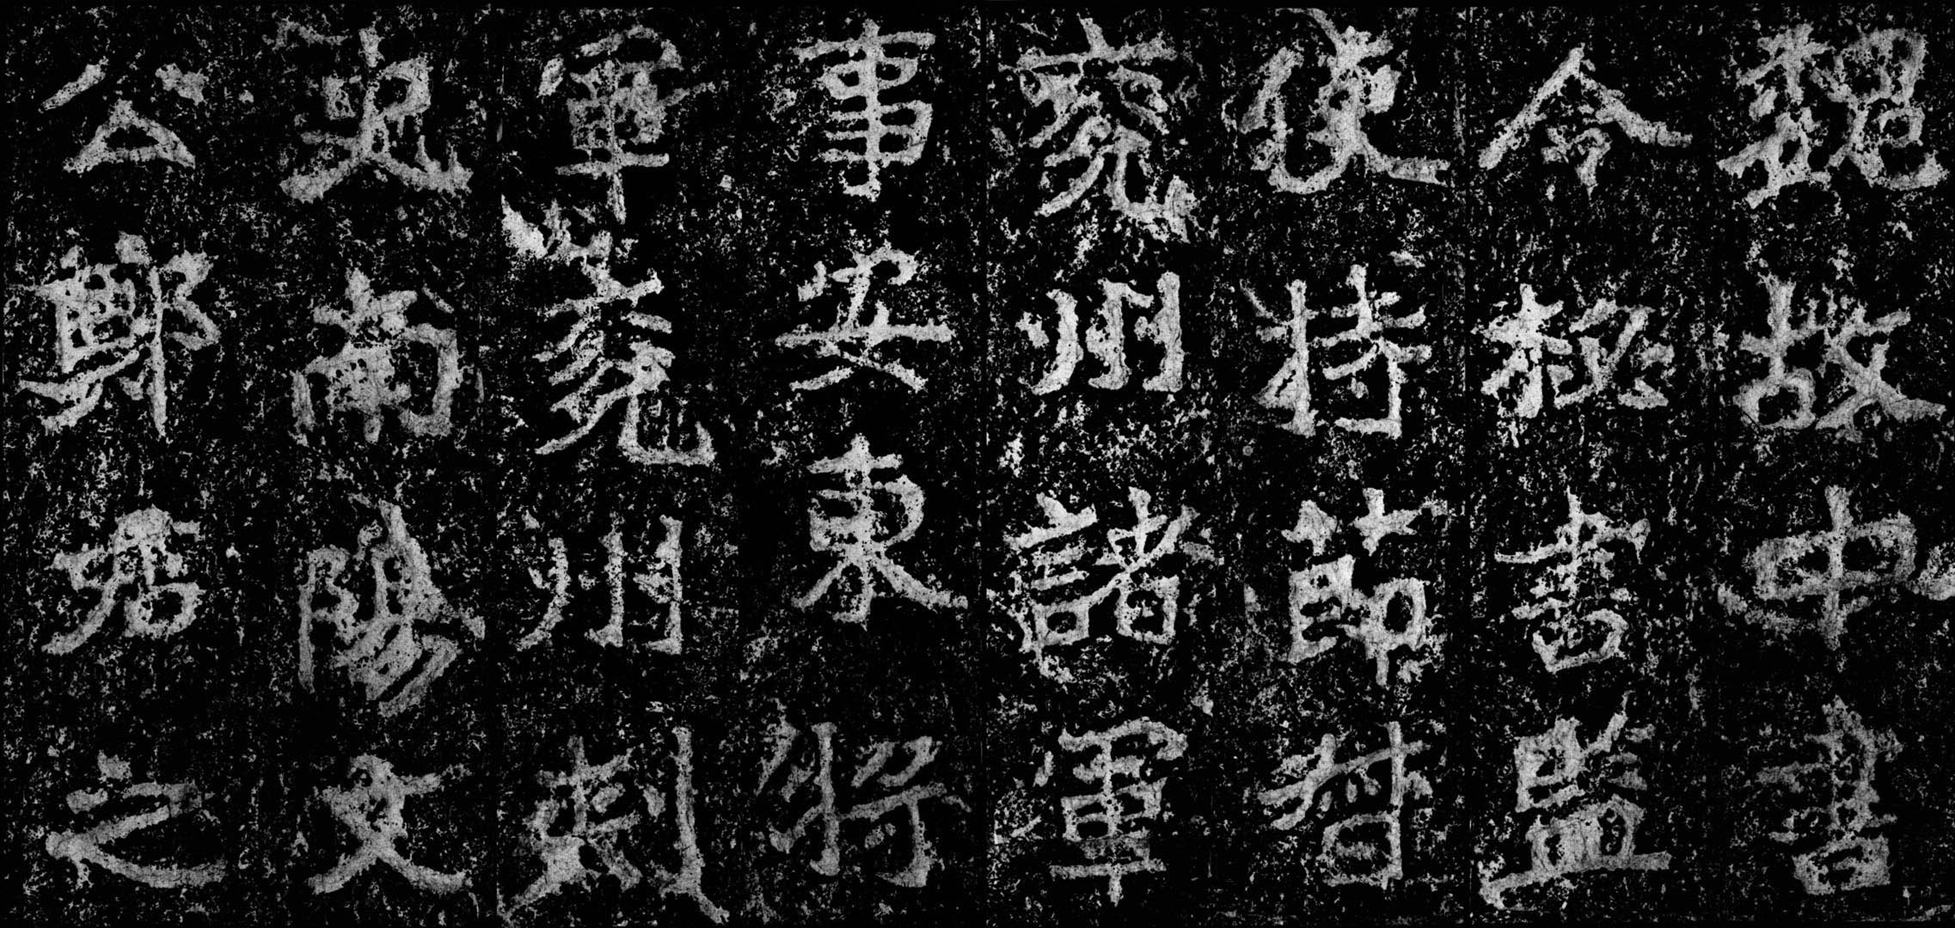 魏故中書
令秘書監
使持節督
兖州諸軍
事安東將
軍兖州刺
史南陽文
公鄭君之